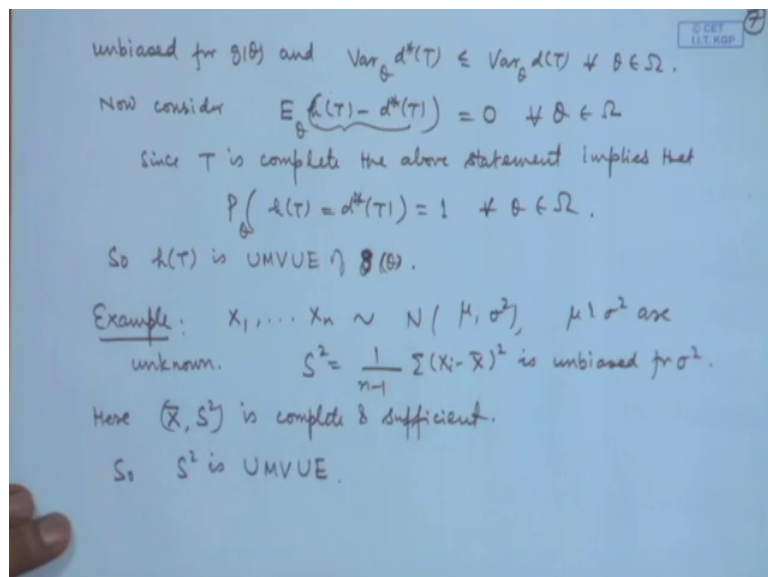 © CET
I.I.T. KGP
7
unbiased for g(θ) and Var_θ d*(T) ≤ Var_θ d(T) ∀ θ ∈ Ω.
Now consider E_θ (h(T) - d*(T)) = 0 ∀ θ ∈ Ω
Since T is complete the above statement implies that
P_θ (h(T) = d*(T)) = 1 ∀ θ ∈ Ω.
So h(T) is UMVUE of g(θ).
Example: X₁, ... Xn ~ N(μ, σ²), μ & σ² are
unknown. S² = 1/(n-1) Σ(Xi - X̄)² is unbiased for σ².
Here (X̄, S²) is complete & sufficient.
So S² is UMVUE.